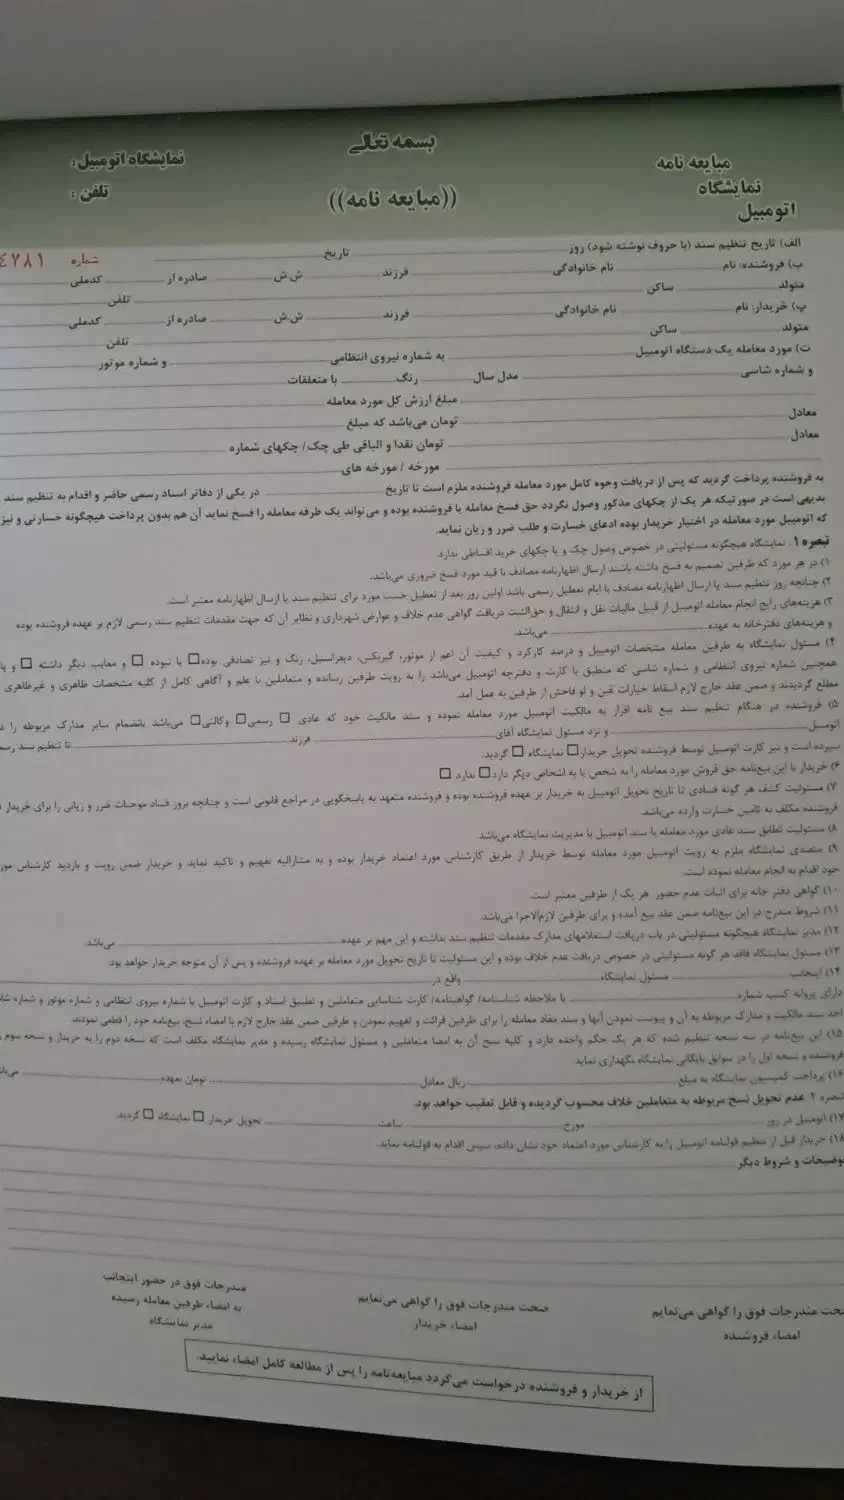 بسمه تعالی
مبایعه نامه
نمایشگاه
اتومبیل
((مبایعه نامه))
نمایشگاه اتومبیل:
تلفن :
الف) تاریخ تنظیم سند (با حروف نوشته شود) روز تاریخ شماره
ب) فروشنده: نام نام خانوادگی فرزند ش.ش صادره از کدملی
متولد ساکن تلفن
پ) خریدار: نام نام خانوادگی فرزند ش.ش صادره از کدملی
متولد ساکن تلفن
ت) مورد معامله یک دستگاه اتومبیل به شماره نیروی انتظامی و شماره موتور
و شماره شاسی مدل سال رنگ با متعلقات
مبلغ ارزش کل مورد معامله
معادل تومان می‌باشد که مبلغ
معادل تومان نقدا و الباقی طی چک/ چکهای شماره
مورخه / مورخه های
به فروشنده پرداخت گردید که پس از دریافت وجوه کامل مورد معامله فروشنده ملزم است تا تاریخ در یکی از دفاتر اسناد رسمی حاضر و اقدام به تنظیم سند
بدیهی است در صورتیکه هر یک از چکهای مذکور وصول نگردد حق فسخ معامله با فروشنده بوده و می‌تواند یک طرفه معامله را فسخ نماید آن هم بدون پرداخت هیچگونه خسارتی و نیز
که اتومبیل مورد معامله در اختیار خریدار بوده ادعای خسارت و طلب ضرر و زیان نماید.
تبصره ۱. نمایشگاه هیچگونه مسئولیتی در خصوص وصول چک و یا چکهای خرید اقساطی ندارد.
۱) در هر مورد که طرفین تصمیم به فسخ داشته باشند ارسال اظهارنامه مصادف با قید مورد فسخ ضروری می‌باشد.
۲) چنانچه روز تنظیم سند یا ارسال اظهارنامه مصادف با ایام تعطیل رسمی باشد اولین روز بعد از تعطیل حسب مورد برای تنظیم سند یا ارسال اظهارنامه معتبر است.
۳) هزینه‌های رایج انجام معامله اتومبیل از قبیل مالیات نقل و انتقال و حق‌الثبت دریافت گواهی عدم خلاف و عوارض شهرداری و نظایر آن که جهت مقدمات تنظیم سند رسمی لازم بر عهده فروشنده بوده
و هزینه‌های دفترخانه به عهده می‌باشد.
۴) مسئول نمایشگاه به طرفین معامله مشخصات اتومبیل و درصد کارکرد و کیفیت آن اعم از موتور، گیربکس، دیفرانسیل، رنگ و نیز تصادفی بوده☐ یا نبوده ☐ و معایب دیگر داشته ☐ و یا
همچنین شماره نیروی انتظامی و شماره شاسی که منطبق با کارت و دفترچه اتومبیل می‌باشد را به رویت طرفین رسانده و متعاملین با علم و آگاهی کامل از کلیه مشخصات ظاهری و غیرظاهری
مطلع گردیدند و ضمن عقد خارج لازم اسقاط خیارات غبن و لو فاحش از طرفین به عمل آمد.
۵) فروشنده در هنگام تنظیم سند بیع نامه اقرار به مالکیت اتومبیل مورد معامله نموده و سند مالکیت خود که عادی ☐ رسمی☐ وکالتی☐ می‌باشد بانضمام سایر مدارک مربوطه را
اتومبیل و نزد مسئول نمایشگاه آقای فرزند تا تنظیم سند
سپرده است و نیز کارت اتومبیل توسط فروشنده تحویل خریدار☐ نمایشگاه ☐ گردید.
۶) خریدار با این بیع‌نامه حق فروش مورد معامله را به شخص یا به اشخاص دیگر دارد☐ ندارد ☐
۷) مسئولیت کشف هر گونه فسادی تا تاریخ تحویل اتومبیل به خریدار بر عهده فروشنده بوده و فروشنده متعهد به پاسخگویی در مراجع قانونی است و چنانچه بروز فساد موجبات ضرر و زیانی را برای خریدار
فروشنده مکلف به تامین خسارت وارده می‌باشد.
۸) مسئولیت تطابق سند عادی مورد معامله با سند اتومبیل با مدیریت نمایشگاه می‌باشد.
۹) متصدی نمایشگاه ملزم به رویت اتومبیل مورد معامله توسط خریدار از طریق کارشناس مورد اعتماد خریدار بوده و به مشارالیه تفهیم و تاکید نماید و خریدار ضمن رویت و بازدید کارشناس
خود اقدام به انجام معامله نموده است.
۱۰) گواهی دفتر خانه برای اثبات عدم حضور هر یک از طرفین معتبر است.
۱۱) شروط مندرج در این بیع‌نامه ضمن عقد بیع آمده و برای طرفین لازم‌الاجرا می‌باشد.
۱۲) مدیر نمایشگاه هیچگونه مسئولیتی در باب دریافت استعلامهای مدارک مقدمات تنظیم سند نداشته و این مهم بر عهده می‌باشد.
۱۳) مسئول نمایشگاه فاقد هر گونه مسئولیتی در خصوص دریافت عدم خلاف بوده و این مسئولیت تا تاریخ تحویل مورد معامله بر عهده فروشنده و پس از آن متوجه خریدار خواهد بود.
۱۴) اینجانب مسئول نمایشگاه واقع در
دارای پروانه کسب شماره با ملاحظه شناسنامه/ گواهینامه/ کارت شناسایی متعاملین و تطبیق اسناد و کارت اتومبیل با شماره نیروی انتظامی و شماره موتور و شماره
اخذ سند مالکیت و مدارک مربوطه به آن و پیوست نمودن آنها و سند مفاد معامله را برای طرفین قرائت و تفهیم نمودن و طرفین ضمن عقد خارج لازم با امضاء نسخ، بیع‌نامه خود را قطعی نمودند.
۱۵) این بیع‌نامه در سه نسخه تنظیم شده که هر یک حکم واحده دارد و کلیه نسخ آن به امضا متعاملین و مسئول نمایشگاه رسیده و مدیر نمایشگاه مکلف است که نسخه دوم را به خریدار و نسخه سوم
فروشنده و نسخه اول را در سوابق بایگانی نمایشگاه نگهداری نماید.
۱۶) پرداخت کمیسیون نمایشگاه به مبلغ ریال معادل تومان بعهده
تبصره ۲ عدم تحویل نسخ مربوطه به متعاملین خلاف محسوب گردیده و قابل تعقیب خواهد بود.
۱۷) اتومبیل در روز مورخ ساعت تحویل خریدار ☐ نمایشگاه ☐ گردید.
۱۸) خریدار قبل از تنظیم قولنامه اتومبیل را به کارشناس مورد اعتماد خود نشان داده، سپس اقدام به قولنامه نماید.
توضیحات و شروط دیگر
صحت مندرجات فوق را گواهی می‌نمایم
امضاء فروشنده
صحت مندرجات فوق را گواهی می‌نمایم
امضاء خریدار
مندرجات فوق در حضور اینجانب
به امضاء طرفین معامله رسیده
مدیر نمایشگاه
از خریدار و فروشنده درخواست می‌گردد مبایعه‌نامه را پس از مطالعه کامل امضاء نمایید.